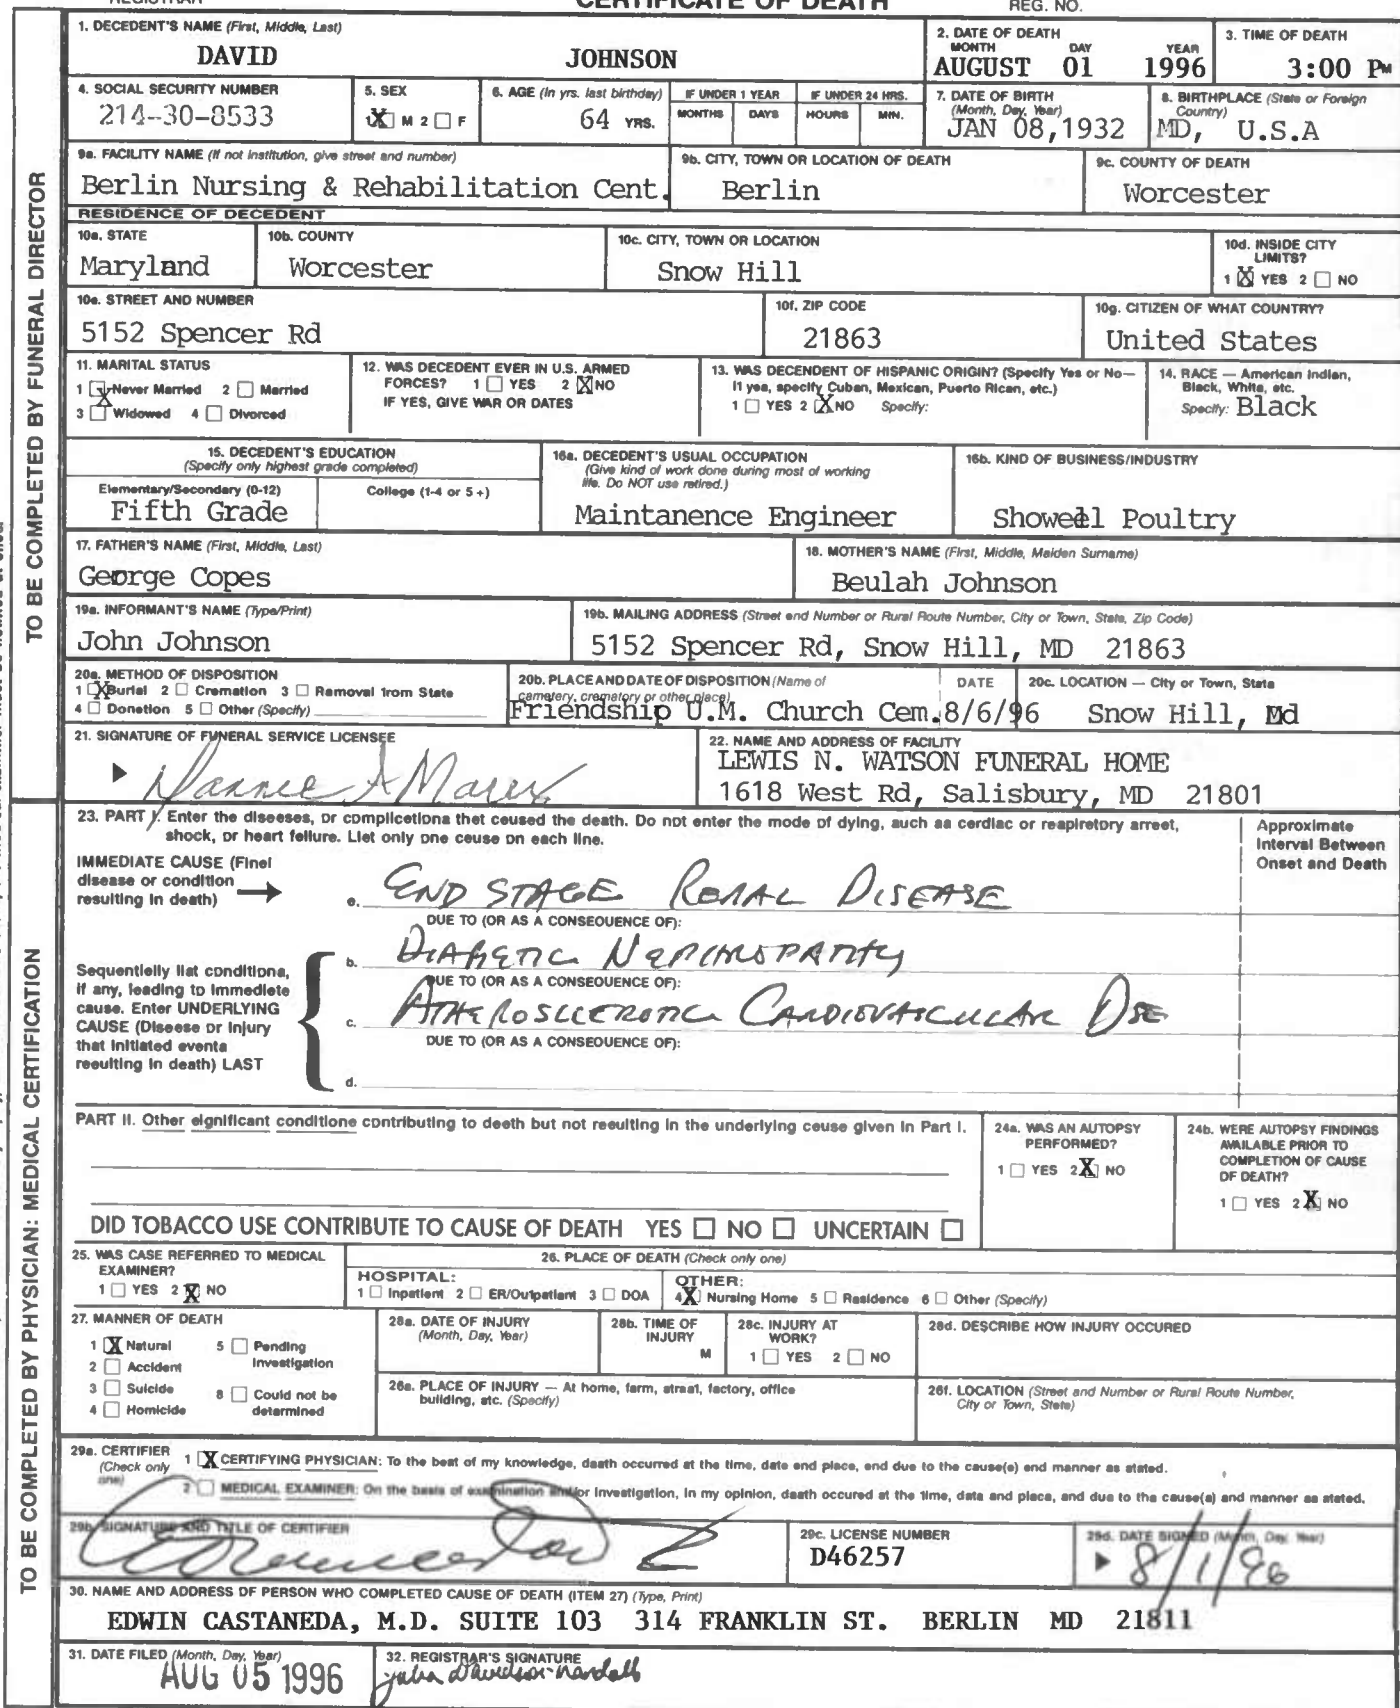 REGISTRAR
CERTIFICATE OF DEATH
REG. NO.
TO BE COMPLETED BY FUNERAL DIRECTOR
1. DECEDENT'S NAME (First, Middle, Last)
DAVID JOHNSON
2. DATE OF DEATH
MONTH DAY YEAR
AUGUST 01 1996
3. TIME OF DEATH
3:00 PM
4. SOCIAL SECURITY NUMBER
214-30-8533
5. SEX
1 X M 2 F
6. AGE (In yrs. last birthday)
64 YRS.
IF UNDER 1 YEAR
MONTHS DAYS
IF UNDER 24 HRS.
HOURS MIN.
7. DATE OF BIRTH
(Month, Day, Year)
JAN 08,1932
8. BIRTHPLACE (State or Foreign
Country)
MD, U.S.A
9a. FACILITY NAME (If not institution, give street and number)
Berlin Nursing & Rehabilitation Cent.
9b. CITY, TOWN OR LOCATION OF DEATH
Berlin
9c. COUNTY OF DEATH
Worcester
RESIDENCE OF DECEDENT
10a. STATE
Maryland
10b. COUNTY
Worcester
10c. CITY, TOWN OR LOCATION
Snow Hill
10d. INSIDE CITY
LIMITS?
1 X YES 2 NO
10e. STREET AND NUMBER
5152 Spencer Rd
10f. ZIP CODE
21863
10g. CITIZEN OF WHAT COUNTRY?
United States
11. MARITAL STATUS
1 X Never Married 2 Married
3 Widowed 4 Divorced
12. WAS DECEDENT EVER IN U.S. ARMED
FORCES? 1 YES 2 X NO
IF YES, GIVE WAR OR DATES
13. WAS DECENDENT OF HISPANIC ORIGIN? (Specify Yes or No—
If yes, specify Cuban, Mexican, Puerto Rican, etc.)
1 YES 2 X NO Specify:
14. RACE — American Indian,
Black, White, etc.
Specify: Black
15. DECEDENT'S EDUCATION
(Specify only highest grade completed)
Elementary/Secondary (0-12) College (1-4 or 5+)
Fifth Grade
16a. DECEDENT'S USUAL OCCUPATION
(Give kind of work done during most of working
life. Do NOT use retired.)
Maintanence Engineer
16b. KIND OF BUSINESS/INDUSTRY
Showell Poultry
17. FATHER'S NAME (First, Middle, Last)
George Copes
18. MOTHER'S NAME (First, Middle, Maiden Surname)
Beulah Johnson
19a. INFORMANT'S NAME (Type/Print)
John Johnson
19b. MAILING ADDRESS (Street and Number or Rural Route Number, City or Town, State, Zip Code)
5152 Spencer Rd, Snow Hill, MD 21863
20a. METHOD OF DISPOSITION
1 X Burial 2 Cremation 3 Removal from State
4 Donation 5 Other (Specify)
20b. PLACE AND DATE OF DISPOSITION (Name of
cemetery, crematory or other place)
DATE
Friendship U.M. Church Cem. 8/6/96
20c. LOCATION — City or Town, State
Snow Hill, Md
21. SIGNATURE OF FUNERAL SERVICE LICENSEE
22. NAME AND ADDRESS OF FACILITY
LEWIS N. WATSON FUNERAL HOME
1618 West Rd, Salisbury, MD 21801
TO BE COMPLETED BY PHYSICIAN: MEDICAL CERTIFICATION
23. PART I. Enter the diseases, or complications that caused the death. Do not enter the mode of dying, such as cardiac or respiratory arrest,
shock, or heart failure. List only one cause on each line.
Approximate
Interval Between
Onset and Death
IMMEDIATE CAUSE (Final
disease or condition
resulting in death)
a. END STAGE RENAL DISEASE
DUE TO (OR AS A CONSEQUENCE OF):
b. DIABETIC NEPHROPATHY
DUE TO (OR AS A CONSEQUENCE OF):
c. ATHEROSCLEROTIC CARDIOVASCULAR DSE
DUE TO (OR AS A CONSEQUENCE OF):
d.
Sequentially list conditions,
if any, leading to immediate
cause. Enter UNDERLYING
CAUSE (Disease or injury
that initiated events
resulting in death) LAST
PART II. Other significant conditions contributing to death but not resulting in the underlying cause given in Part I.
24a. WAS AN AUTOPSY
PERFORMED?
1 YES 2 X NO
24b. WERE AUTOPSY FINDINGS
AVAILABLE PRIOR TO
COMPLETION OF CAUSE
OF DEATH?
1 YES 2 X NO
DID TOBACCO USE CONTRIBUTE TO CAUSE OF DEATH YES NO UNCERTAIN
25. WAS CASE REFERRED TO MEDICAL
EXAMINER?
1 YES 2 X NO
26. PLACE OF DEATH (Check only one)
HOSPITAL:
1 Inpatient 2 ER/Outpatient 3 DOA
OTHER:
4 X Nursing Home 5 Residence 6 Other (Specify)
27. MANNER OF DEATH
1 X Natural 5 Pending
Investigation
2 Accident
3 Suicide 8 Could not be
4 Homicide determined
28a. DATE OF INJURY
(Month, Day, Year)
28b. TIME OF
INJURY
M
28c. INJURY AT
WORK?
1 YES 2 NO
28d. DESCRIBE HOW INJURY OCCURED
28e. PLACE OF INJURY — At home, farm, street, factory, office
building, etc. (Specify)
28f. LOCATION (Street and Number or Rural Route Number,
City or Town, State)
29a. CERTIFIER
(Check only
one)
1 X CERTIFYING PHYSICIAN: To the best of my knowledge, death occurred at the time, date and place, and due to the cause(s) and manner as stated.
2 MEDICAL EXAMINER: On the basis of examination and/or investigation, in my opinion, death occured at the time, data and place, and due to the cause(s) and manner as stated.
29b. SIGNATURE AND TITLE OF CERTIFIER
29c. LICENSE NUMBER
D46257
29d. DATE SIGNED (Month, Day, Year)
8/1/96
30. NAME AND ADDRESS OF PERSON WHO COMPLETED CAUSE OF DEATH (ITEM 27) (Type, Print)
EDWIN CASTANEDA, M.D. SUITE 103 314 FRANKLIN ST. BERLIN MD 21811
31. DATE FILED (Month, Day, Year)
AUG 05 1996
32. REGISTRAR'S SIGNATURE